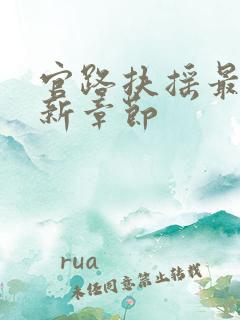 官路扶摇最
新章节
rua
未经同意禁止转载